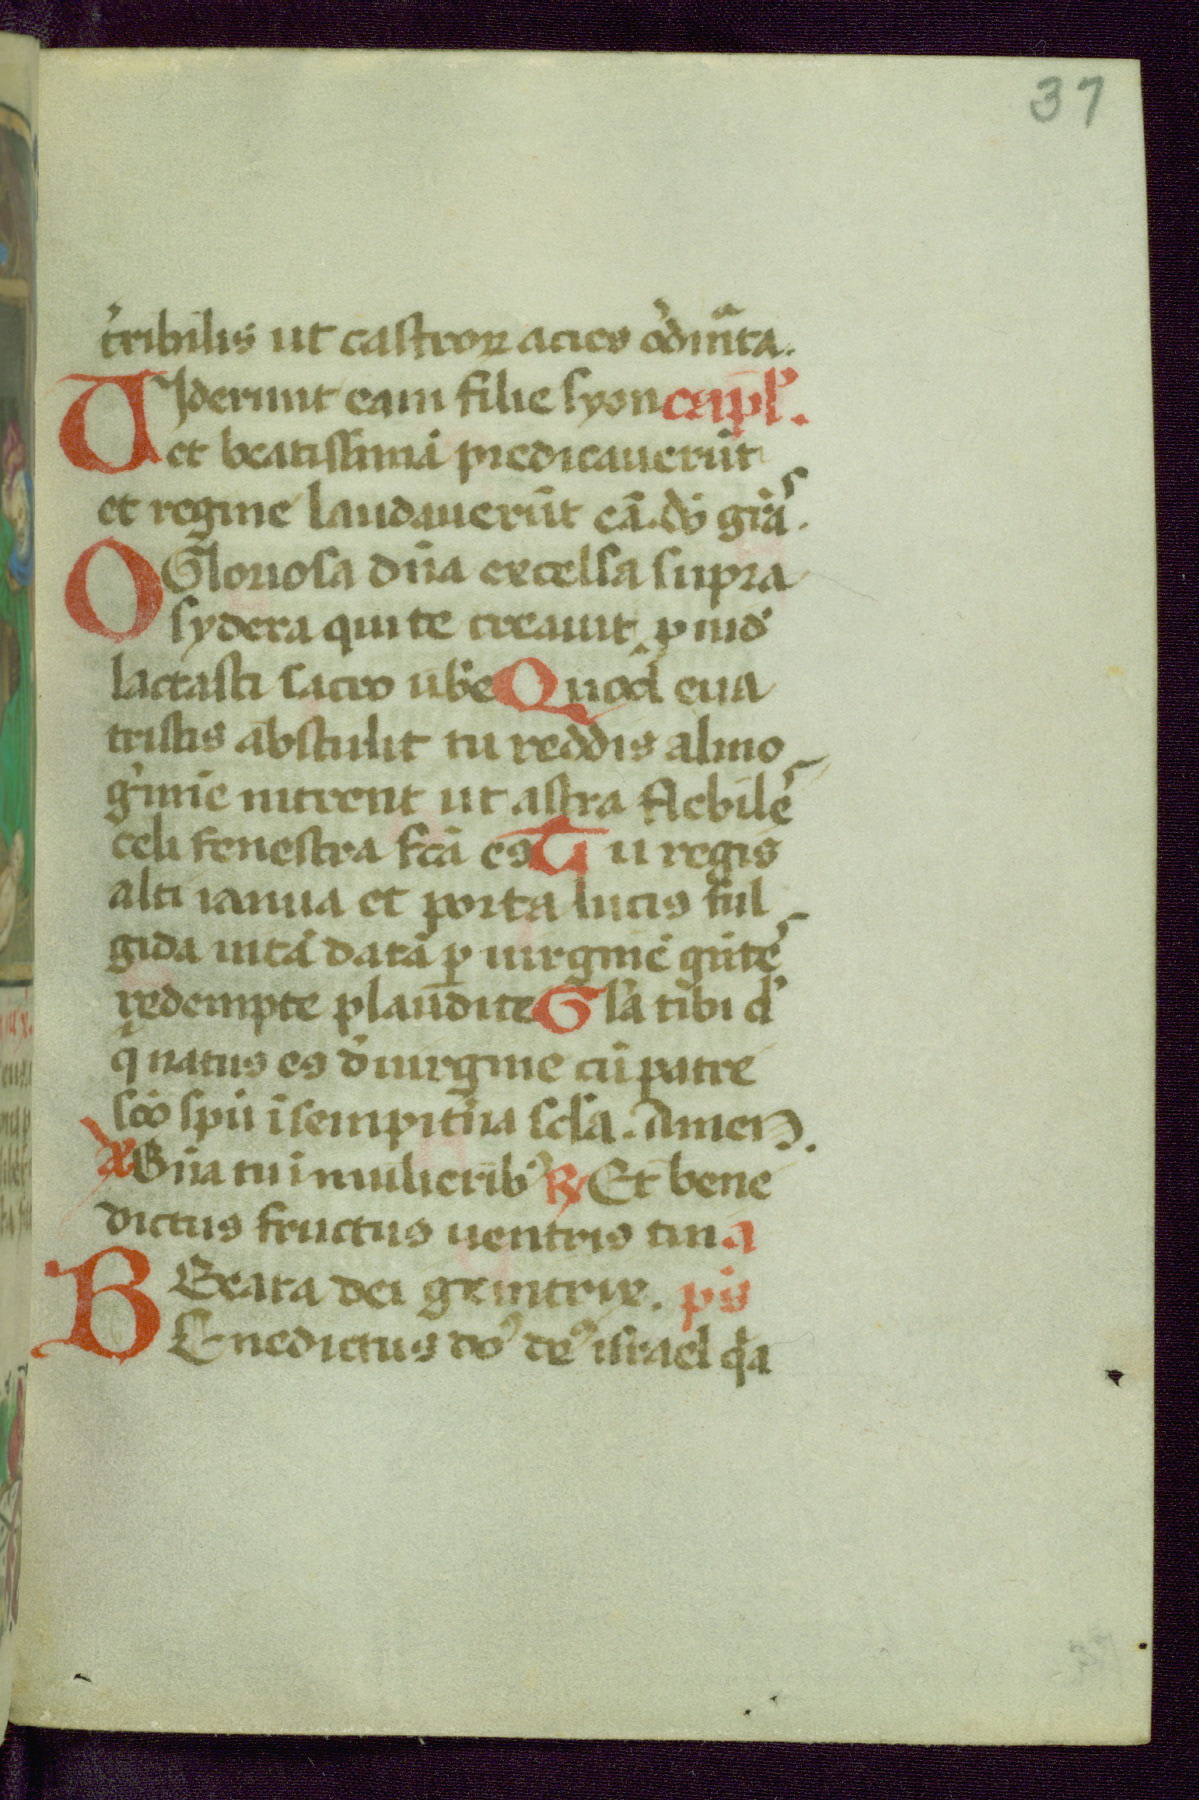 37
t͛ribilis ut castroꝝ acies o͛dinᷓta.
Uiderunt eam filie syon cap̄lʼ.
et beatissimā predicauerūt
et regine laudauerūt eā. dō gr̄aˢ.
O Gloriosa dn̄a excelsa supra
sydera qui te creauit ꝓuidʼ
lactasti sacro ub͛e Quod eua
tristis abstulit tu reddis almo
g͛mīe intrent ut astra flebileˢ
celi fenestra fc̄a es Tu regis
alti ianua et porta lucis ful
gida uitā datā ꝑ uirginē gn̄teˢ
redempte plaudite Gl̄a tibi dʼ
qͥ natus es dʼ uirgine cū patre
sc̄o spū ī sempit͛na sc̄la. Amen.
℣ Bn̄a tu ī mulierib᷒ ℟ Et bene
dictus fructus uentris tui a
Beata dei genitrix. p̄s
BEnedictus do᷒ de᷒ israel qͥa